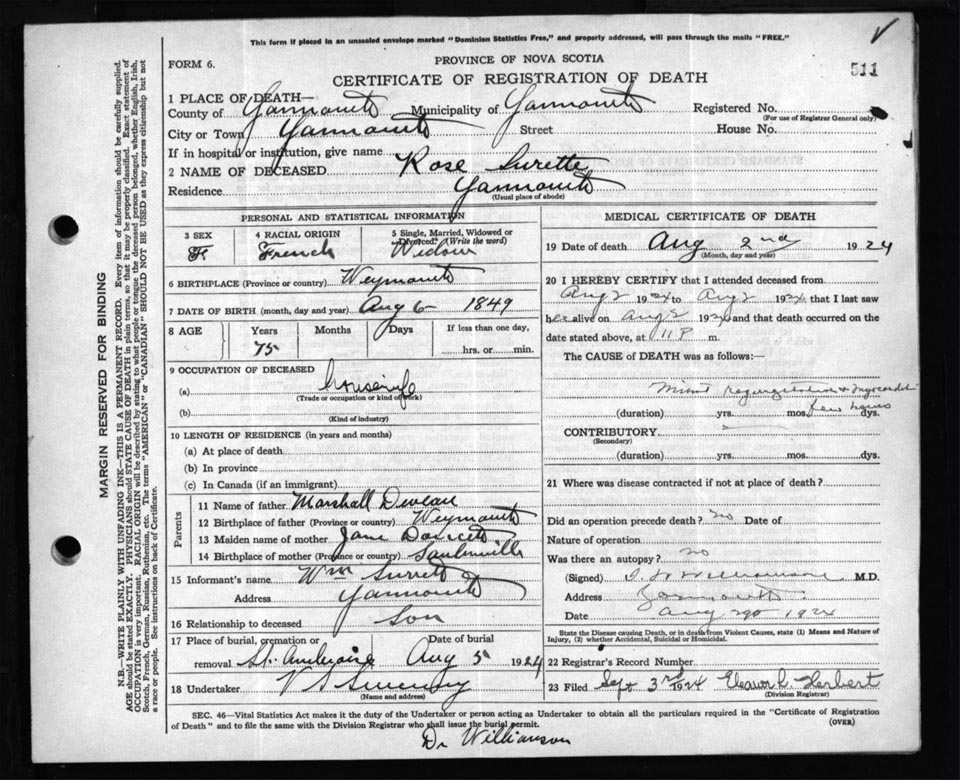 This form if placed in an unsealed envelope marked "Dominion Statistics Free," and properly addressed, will pass through the mails "FREE."
PROVINCE OF NOVA SCOTIA
FORM 6.
CERTIFICATE OF REGISTRATION OF DEATH
511
1 PLACE OF DEATH—
County of Yarmouth Municipality of Yarmouth Registered No.
(For use of Registrar General only)
City or Town Yarmouth Street House No.
If in hospital or institution, give name
2 NAME OF DECEASED Rose Surette
Residence Yarmouth
(Usual place of abode)
PERSONAL AND STATISTICAL INFORMATION
3 SEX 4 RACIAL ORIGIN 5 Single, Married, Widowed or Divorced. (Write the word)
F French Widow
6 BIRTHPLACE (Province or country) Weymouth
7 DATE OF BIRTH (month, day and year) Aug 6 1849
8 AGE Years Months Days If less than one day,
75 hrs. or min.
9 OCCUPATION OF DECEASED
(a) housewife
(Trade or occupation or kind of work)
(b)
(Kind of industry)
10 LENGTH OF RESIDENCE (in years and months)
(a) At place of death
(b) In province
(c) In Canada (if an immigrant)
Parents
11 Name of father Marshall
12 Birthplace of father (Province or country) Weymouth
13 Maiden name of mother Jane Doucett
14 Birthplace of mother (Province or country) Saulnierville
15 Informant's name Wm Surrett
Address Yarmouth
16 Relationship to deceased Son
17 Place of burial, cremation or Date of burial
removal St. Ambroise Aug 5 1924
18 Undertaker V S Sweeney
(Name and address)
MEDICAL CERTIFICATE OF DEATH
19 Date of death Aug 2nd 1924
(Month, day and year)
20 I HEREBY CERTIFY that I attended deceased from
Aug 2 1924 to Aug 2 1924 that I last saw
her alive on Aug 2 1924 and that death occurred on the
date stated above, at 11 P m.
The CAUSE OF DEATH was as follows:
regurgitation
(duration) yrs. mos. few hours dys.
CONTRIBUTORY
(Secondary)
(duration) yrs. mos. dys.
21 Where was disease contracted if not at place of death?
Did an operation precede death? no Date of
Nature of operation
Was there an autopsy? no
(Signed) Williamson M.D.
Address Yarmouth
Date Aug 1924
State the Disease causing Death, or in death from Violent Causes, state (1) Means and Nature of
Injury, (2) whether Accidental, Suicidal or Homicidal.
22 Registrar's Record Number
23 Filed Sept 3rd 1924 Eleanor L. Herbert
(Division Registrar)
SEC. 46—Vital Statistics Act makes it the duty of the Undertaker or person acting as Undertaker to obtain all the particulars required in the "Certificate of Registration
of Death" and to file the same with the Division Registrar who shall issue the burial permit. (OVER)
Dr Williamson
MARGIN RESERVED FOR BINDING
N.B.—WRITE PLAINLY WITH UNFADING INK—THIS IS A PERMANENT RECORD. Every item of information should be carefully supplied.
AGE should be stated EXACTLY. PHYSICIANS should STATE CAUSE OF DEATH in plain terms, so that it may be properly classified. Exact statement of
OCCUPATION is very important. RACIAL ORIGIN will be described by stating to what people or tongue the deceased person belonged, whether English, Irish,
Scotch, French, German, Russian, Ruthenian, etc. The terms "AMERICAN" or "CANADIAN" SHOULD NOT BE USED as they express citizenship but not
a race or people. See instructions on back of Certificate.